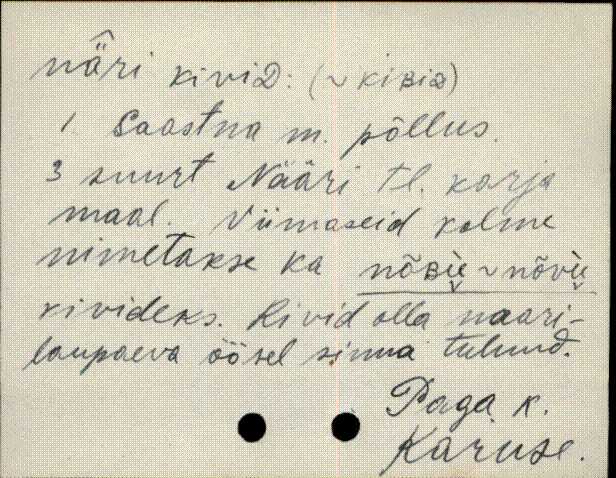 nä̂ri kiviD: (~ kiʙia)
1 Saastna m. põllus.
3 suurt Nääri tl. karja
maal. Viimaseid kolme
nimetakse ka nõʙi̬i̬ ~ nõvi̬i̬
kivideks. Kivid olla naari-
laupaeva öösel sinna tulnud.
Paga k.
Karuse.